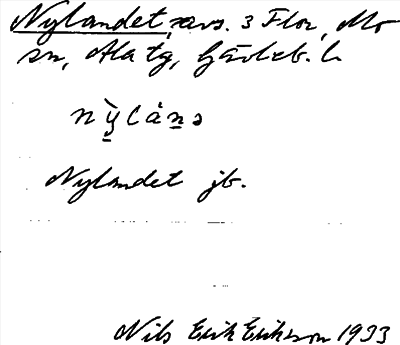 Nylandet, avs. 3 Flor, Mo
sn, Ala tg, Gävleb. l.
nỳlånə
Nylandet jb.
Nils Erik Eriksson 1933